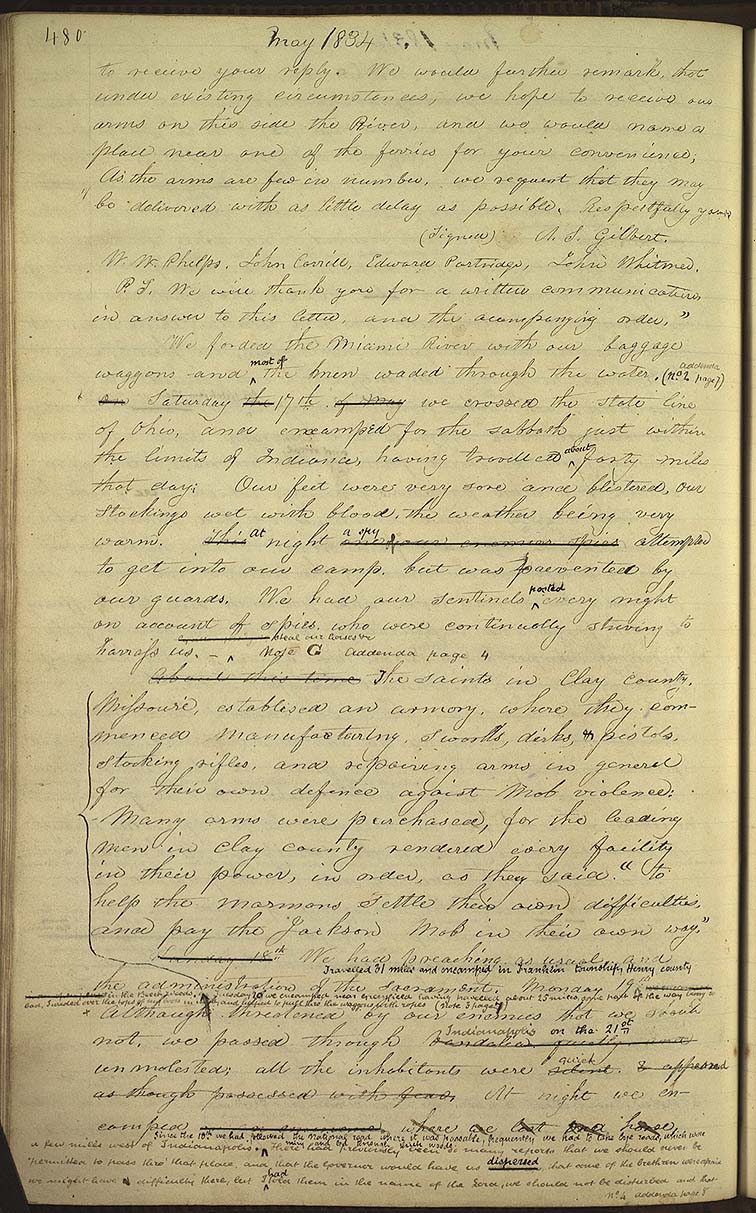 480
May 1834.
to receive your reply. We would further remark, that
under existing circumstances, we hope to receive our
arms on this side the River, and we would name a
place near one of the ferries for your convenience,
As the arms are few in number, we request that they may
" be delivered with as little delay as possible. Respectfully yours
(Signed) A. S. Gilbert.
W. W. Phelps, John Corrill, Edward Partridge, John Whitmer.
P. S. We will thank you for a written communication,
in answer to this letter, and the acompanying order."
We forded the Miami River with our baggage
waggons and most of the men waded through the water. (addenda No 2 page 7)
on Saturday the 17th. of May we crossed the state line
of Ohio, and encamped for the sabbath just within
the limits of Indiana, having travelled about forty miles
that day; Our feet were very sore and blistered, our
stockings wet with blood, the weather being very
warm. This At night a spy our enemies spies attempted
to get into our camp, but was prevented by
our guards. We had our sentinels posted every night
on account of spies who were continually striving to
harrass us. – steal our horses &c Note G Addenda page 4
About this time The saints in Clay county,
Missouri, establised an armory, where they com-
menced manufacturing, swords, dirks, & pistols,
stocking rifles, and repairing arms in general
for their own defence against Mob violence;
Many arms were purchased, for the leading
men in Clay county rendered every facility
in their power, in order, as they said, "to
help the Mormons settle their own difficulties,
and pay the Jackson Mob in their own way."
Sunday 18th We had preaching as usual and
the administration of the Sacrament. Monday 19th Travelled 31 miles and encamped in Franklin township, Henry county
in the Beech woods. Tuesday 20 we encamped near Greenfield having travelled about 25 miles, some part of the way being so
bad, I walked over the tops of my boots in mud, helped to pull thro the waggons with ropes (Note 3 page 7)
Although threatened by our enemies that we should
not, we passed through Vandalia quietly and Indianapolis on the 21st
unmolested; all the inhabitants were silent quiet & appeared
as though possessed with fear. At night we en-
camped where we lost one horse,
Since the 18th we had followed the national road where it was passable, frequently we had to take bye roads, which were
miry and led through thick woods
a few miles west of Indianapolis. There had previously been so many reports that we should never be
permitted to pass thro' that place, and that the Governor would have us dispersed, that some of the brethren were afraid
we might have difficulty there, but I had told them in the name of the Lord, we should not be disturbed and that
No 4 addenda page 8